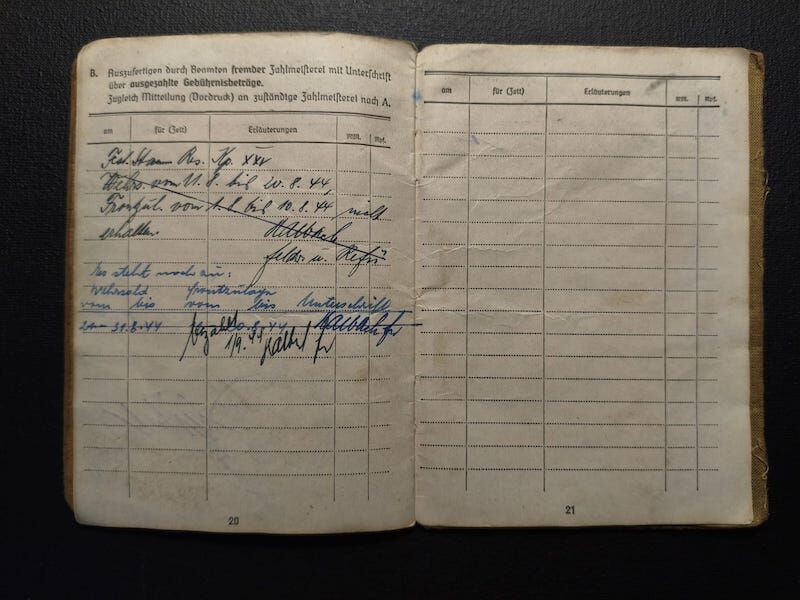 B. Auszufertigen durch Beamten fremder Zahlmeisterei mit Unterschrift
über ausgezahlte Gebührnisbeträge.
Zugleich Mitteilung (Vordruck) an zuständige Zahlmeisterei nach A.
am für (Zeit) Erläuterungen RM. Rpf.
Res. Kp. XXV
vom 11.8. bis 20.8.44,
vom 1.8. bis 10.8.44 nicht
erhalten.
Kallbach
Es steht noch zu:
Wehrsold Frontzulage
vom bis vom bis Unterschrift
31.8.44 8.44
bezahlt
1/9.44
20
am für (Zeit) Erläuterungen RM. Rpf.
21